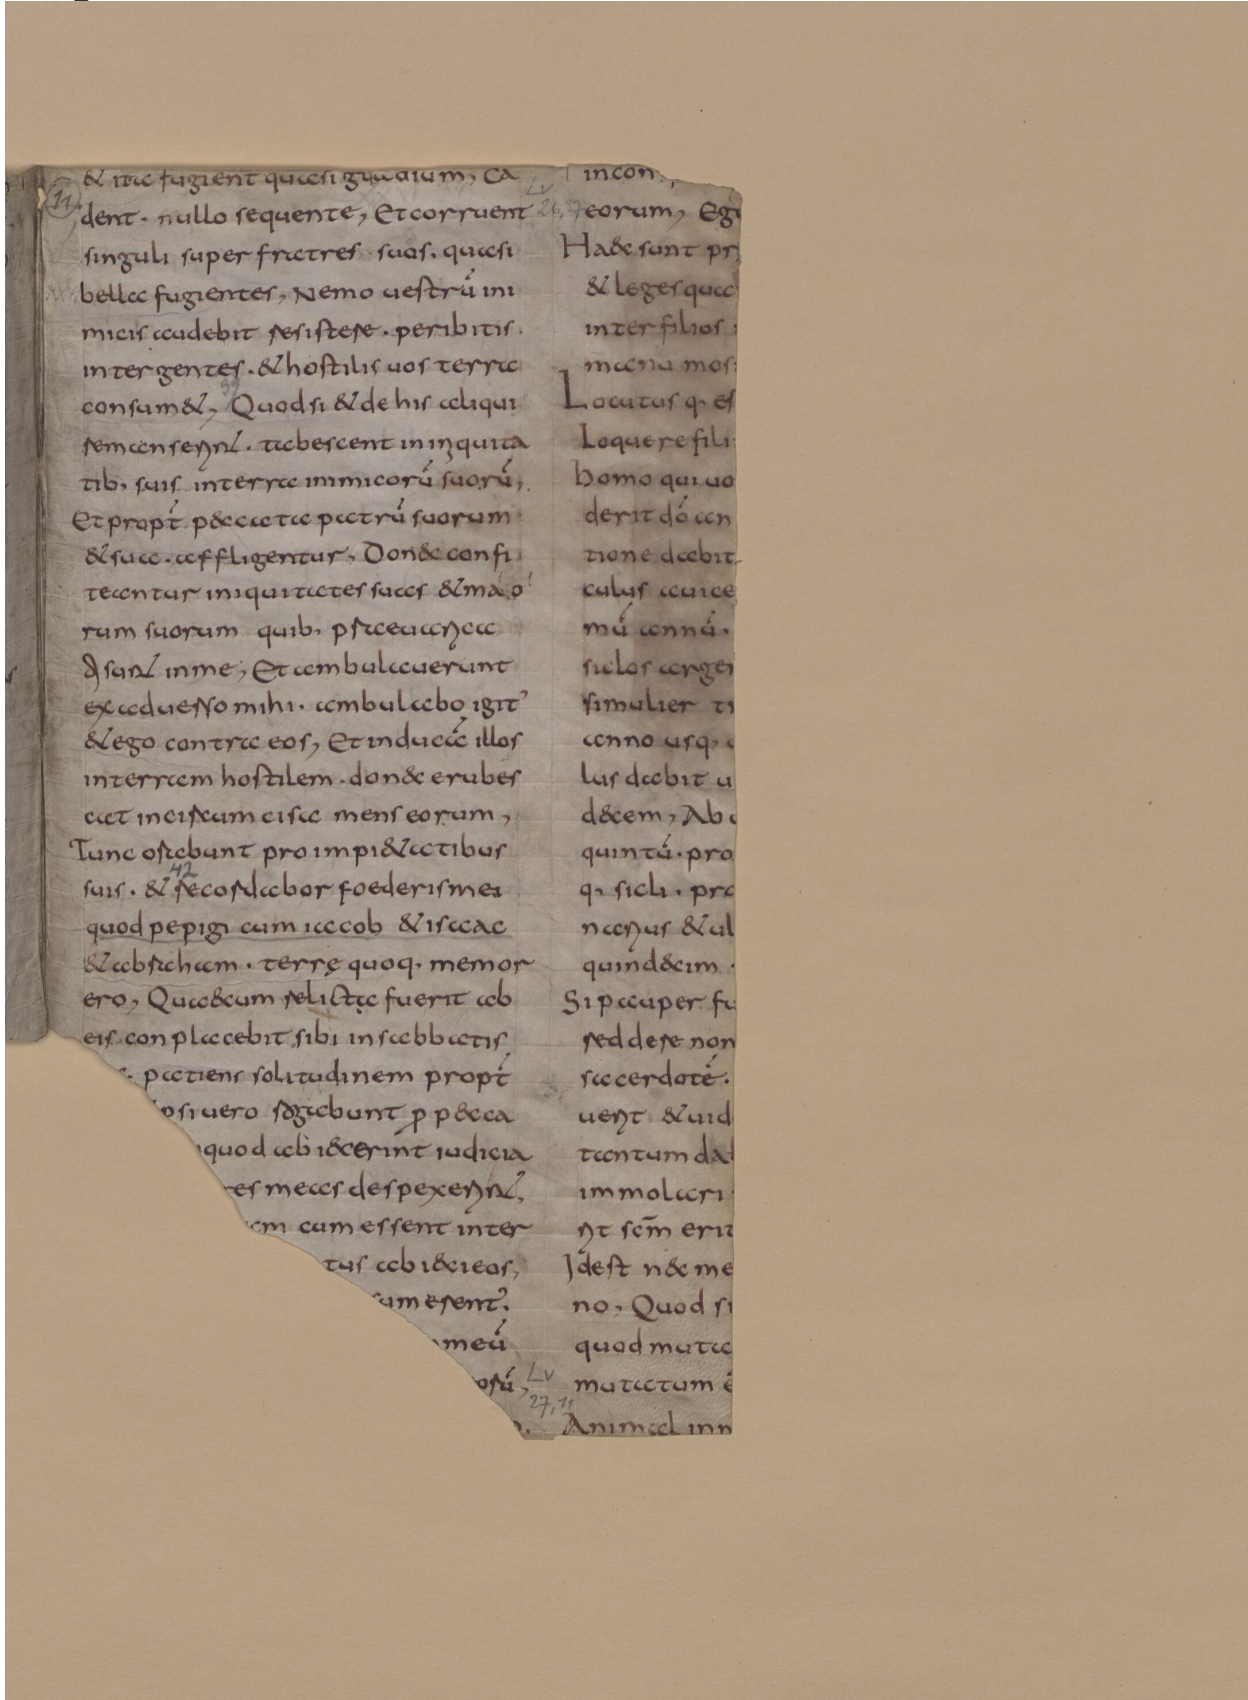 & ita fugient quasi gladium, Ca
dent. nullo sequente, Et corruent
singuli super fratres suos. quasi
bella fugientes, Nemo uestrū ini
micis audebit resistere. peribitis
inter gentes. & hostilis uos terra
consum&, Quod si & de his aliqui
remanserint. tabescent in iniquita
tib, suis in terra inimicorū suorū,
Et propt̄ peccata patrū suorum
& sua. affligentur, Don&c confi
teantur iniquitates suas & maio
rum suorum quib, praeuaricati
sunt in me, Et ambulauerunt
ex aduerso mihi. ambulabo igit'
& ego contra eos, Et inducā illos
in terram hostilem. don&c erubes
cat incircumcisa mens eorum,
Tunc orabunt pro impi&atibus
suis. & recordabor foederis mei
42
quod pepigi cum iacob & isaac
& abraham. terrę quoq, memor
ero, Quae cum relicta fuerit ab
eis conplacebit sibi in sabbatis
patiens solitudinem propt̄
psi uero rogabunt p pecca
quod abiecerint iudicia
res meas despexerint,
am cum essent inter
tus abieci eos,
sumerent'.
meū
orū,
11
Lv
26,37
Lv
27,11
incon
eorum, Eg
Haec sunt pr
& leges qua
inter filios
manu mos
Locutus q, es
Loquere fili
homo qui uo
derit dō an
tione dabit
culus a uice
mū annū.
siclos argen
si mulier tr
anno usq,
lus dabit u
decem, Ab
quintū. pro
q, sicli. pro
narius & ul
quindecim.
Si pauper fu
red dere non
sacerdotē.
uerit & uid
tantum da
immolari
rit scm̄ erit
Id est nec me
no, Quod si
quod muta
mutatum ē
Animal inm